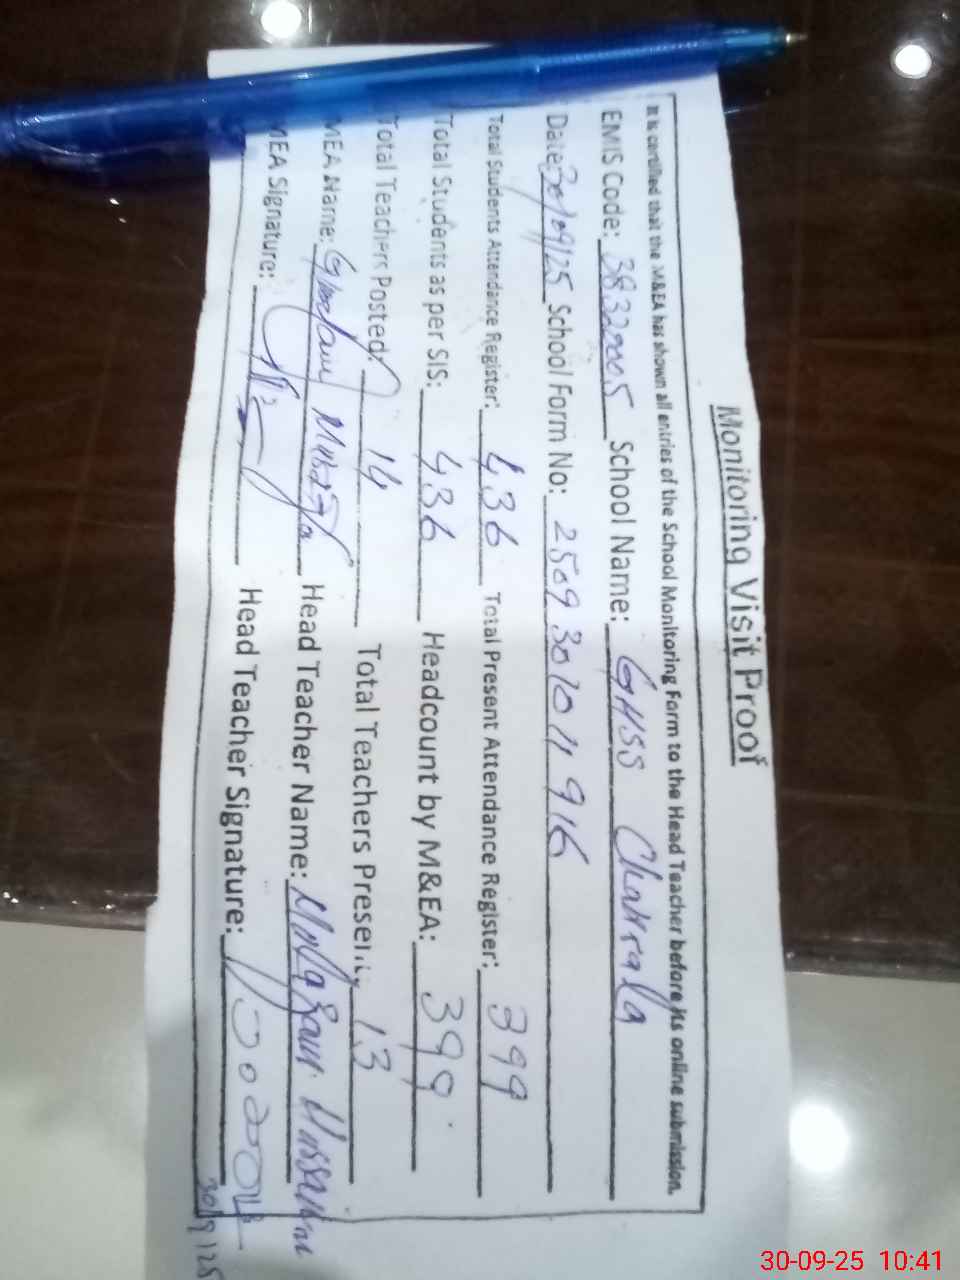 Monitoring Visit Proof
It is certified that the M&EA has shown all entries of the School Monitoring Form to the Head Teacher before its online submission.
EMIS Code: 38320005 School Name: GHSS Chakrala
Date: 30/09/25 School Form No: 2509301011916
Total Students Attendance Register: 436 Total Present Attendance Register: 399
Total Students as per SIS: 436 Headcount by M&EA: 399
Total Teachers Posted: 14 Total Teachers Present: 13
MEA Name: Ghulam Mustafa Head Teacher Name: Hussain
MEA Signature: Head Teacher Signature:
30/9/25
30-09-25 10:41